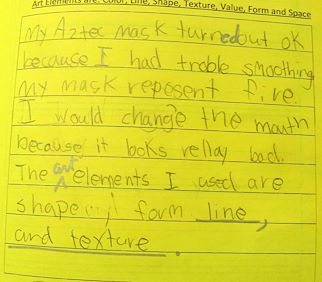 Art Elements are: Color, Line, Shape, Texture, Value, Form and Space
My Aztec mask turned out ok
because I had troble smoothing
my mask repesent fire.
I would change the mouth
because it looks rellay bad.
The art elements I used are
shape, form line,
and texture.